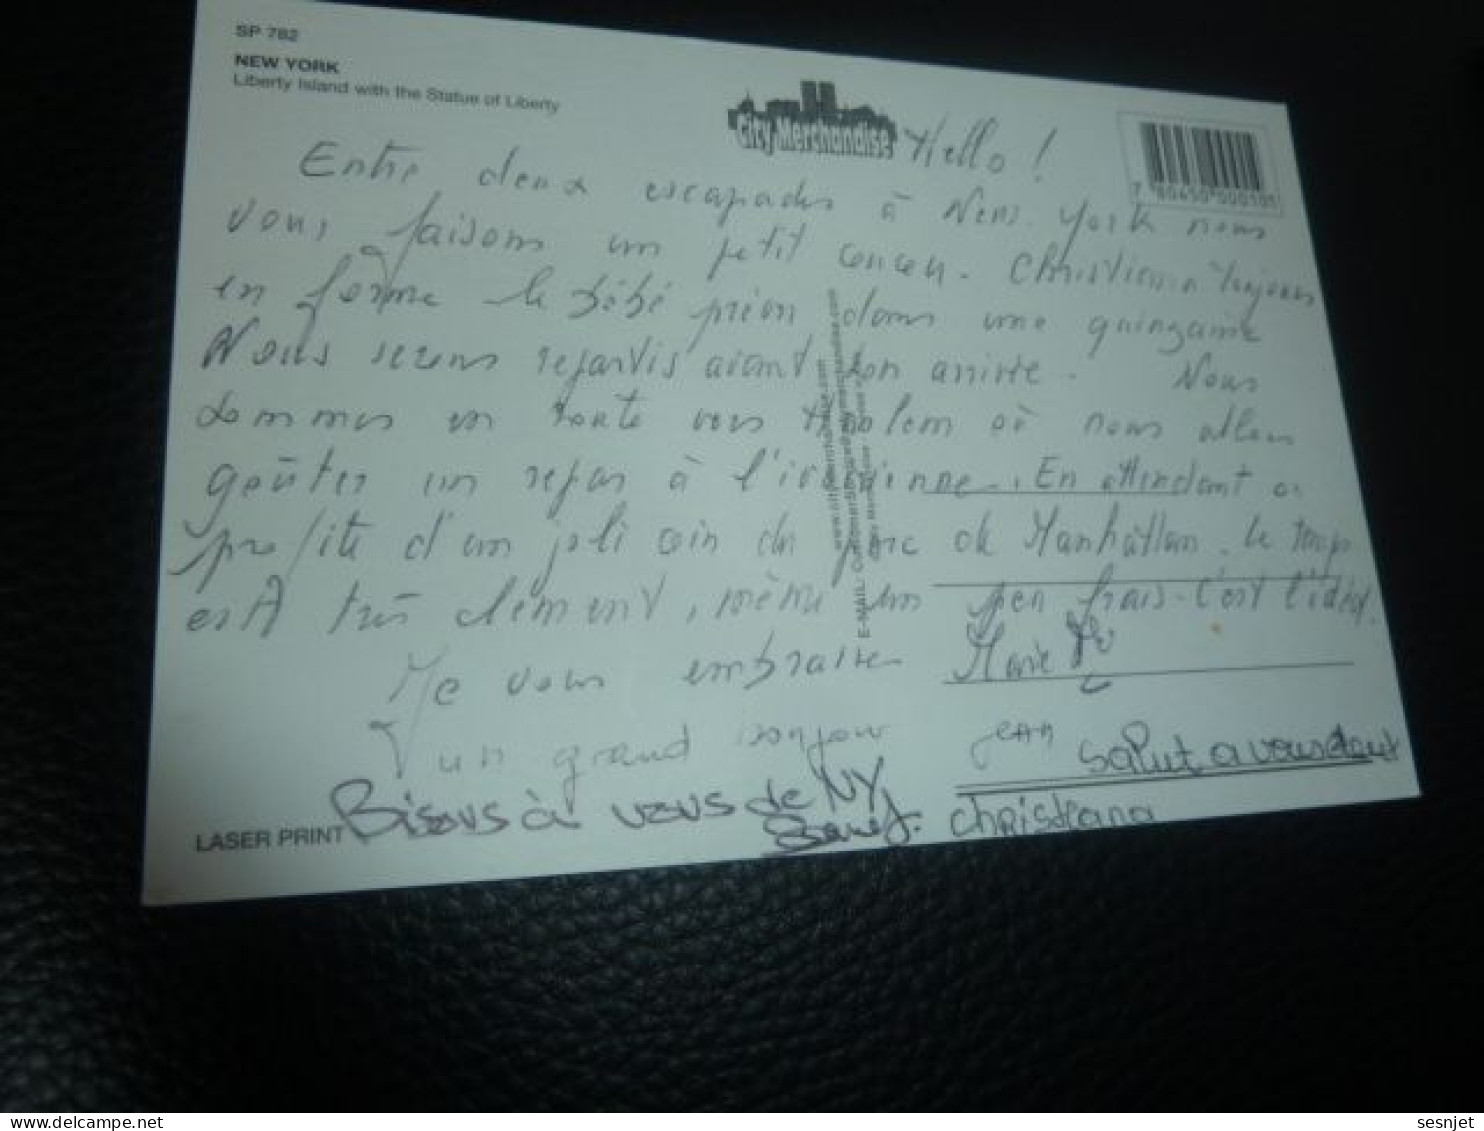 SP 782
NEW YORK
Liberty Island with the Statue of Liberty
City Merchandise
7 80450 000101
Hello !
Entre deux escapades à New York nous
vous faisons un petit coucou. Christiana toujours
en forme le bébé prévu dans une quinzaine
Nous serons repartis avant son arrivée. Nous
sommes en route vers Harlem où nous allons
goûter un repas à l'
En attendant on
profite d'un joli coin du parc de Manhattan. Le temps
est très clément, même un peu frais. C'est l'idéal.
Je vous embrasse Marie
un grand bonjour Jean
salut a vous
Bisous à vous de NY
Christiana
LASER PRINT